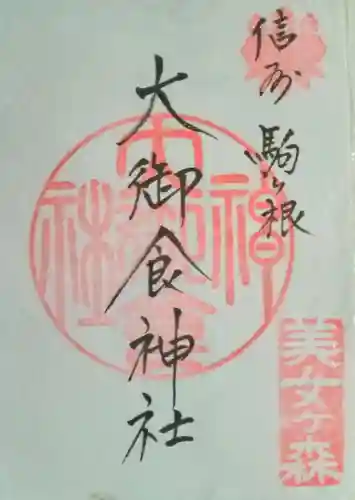 信州 駒ヶ根
大御食神社
美女ヶ森